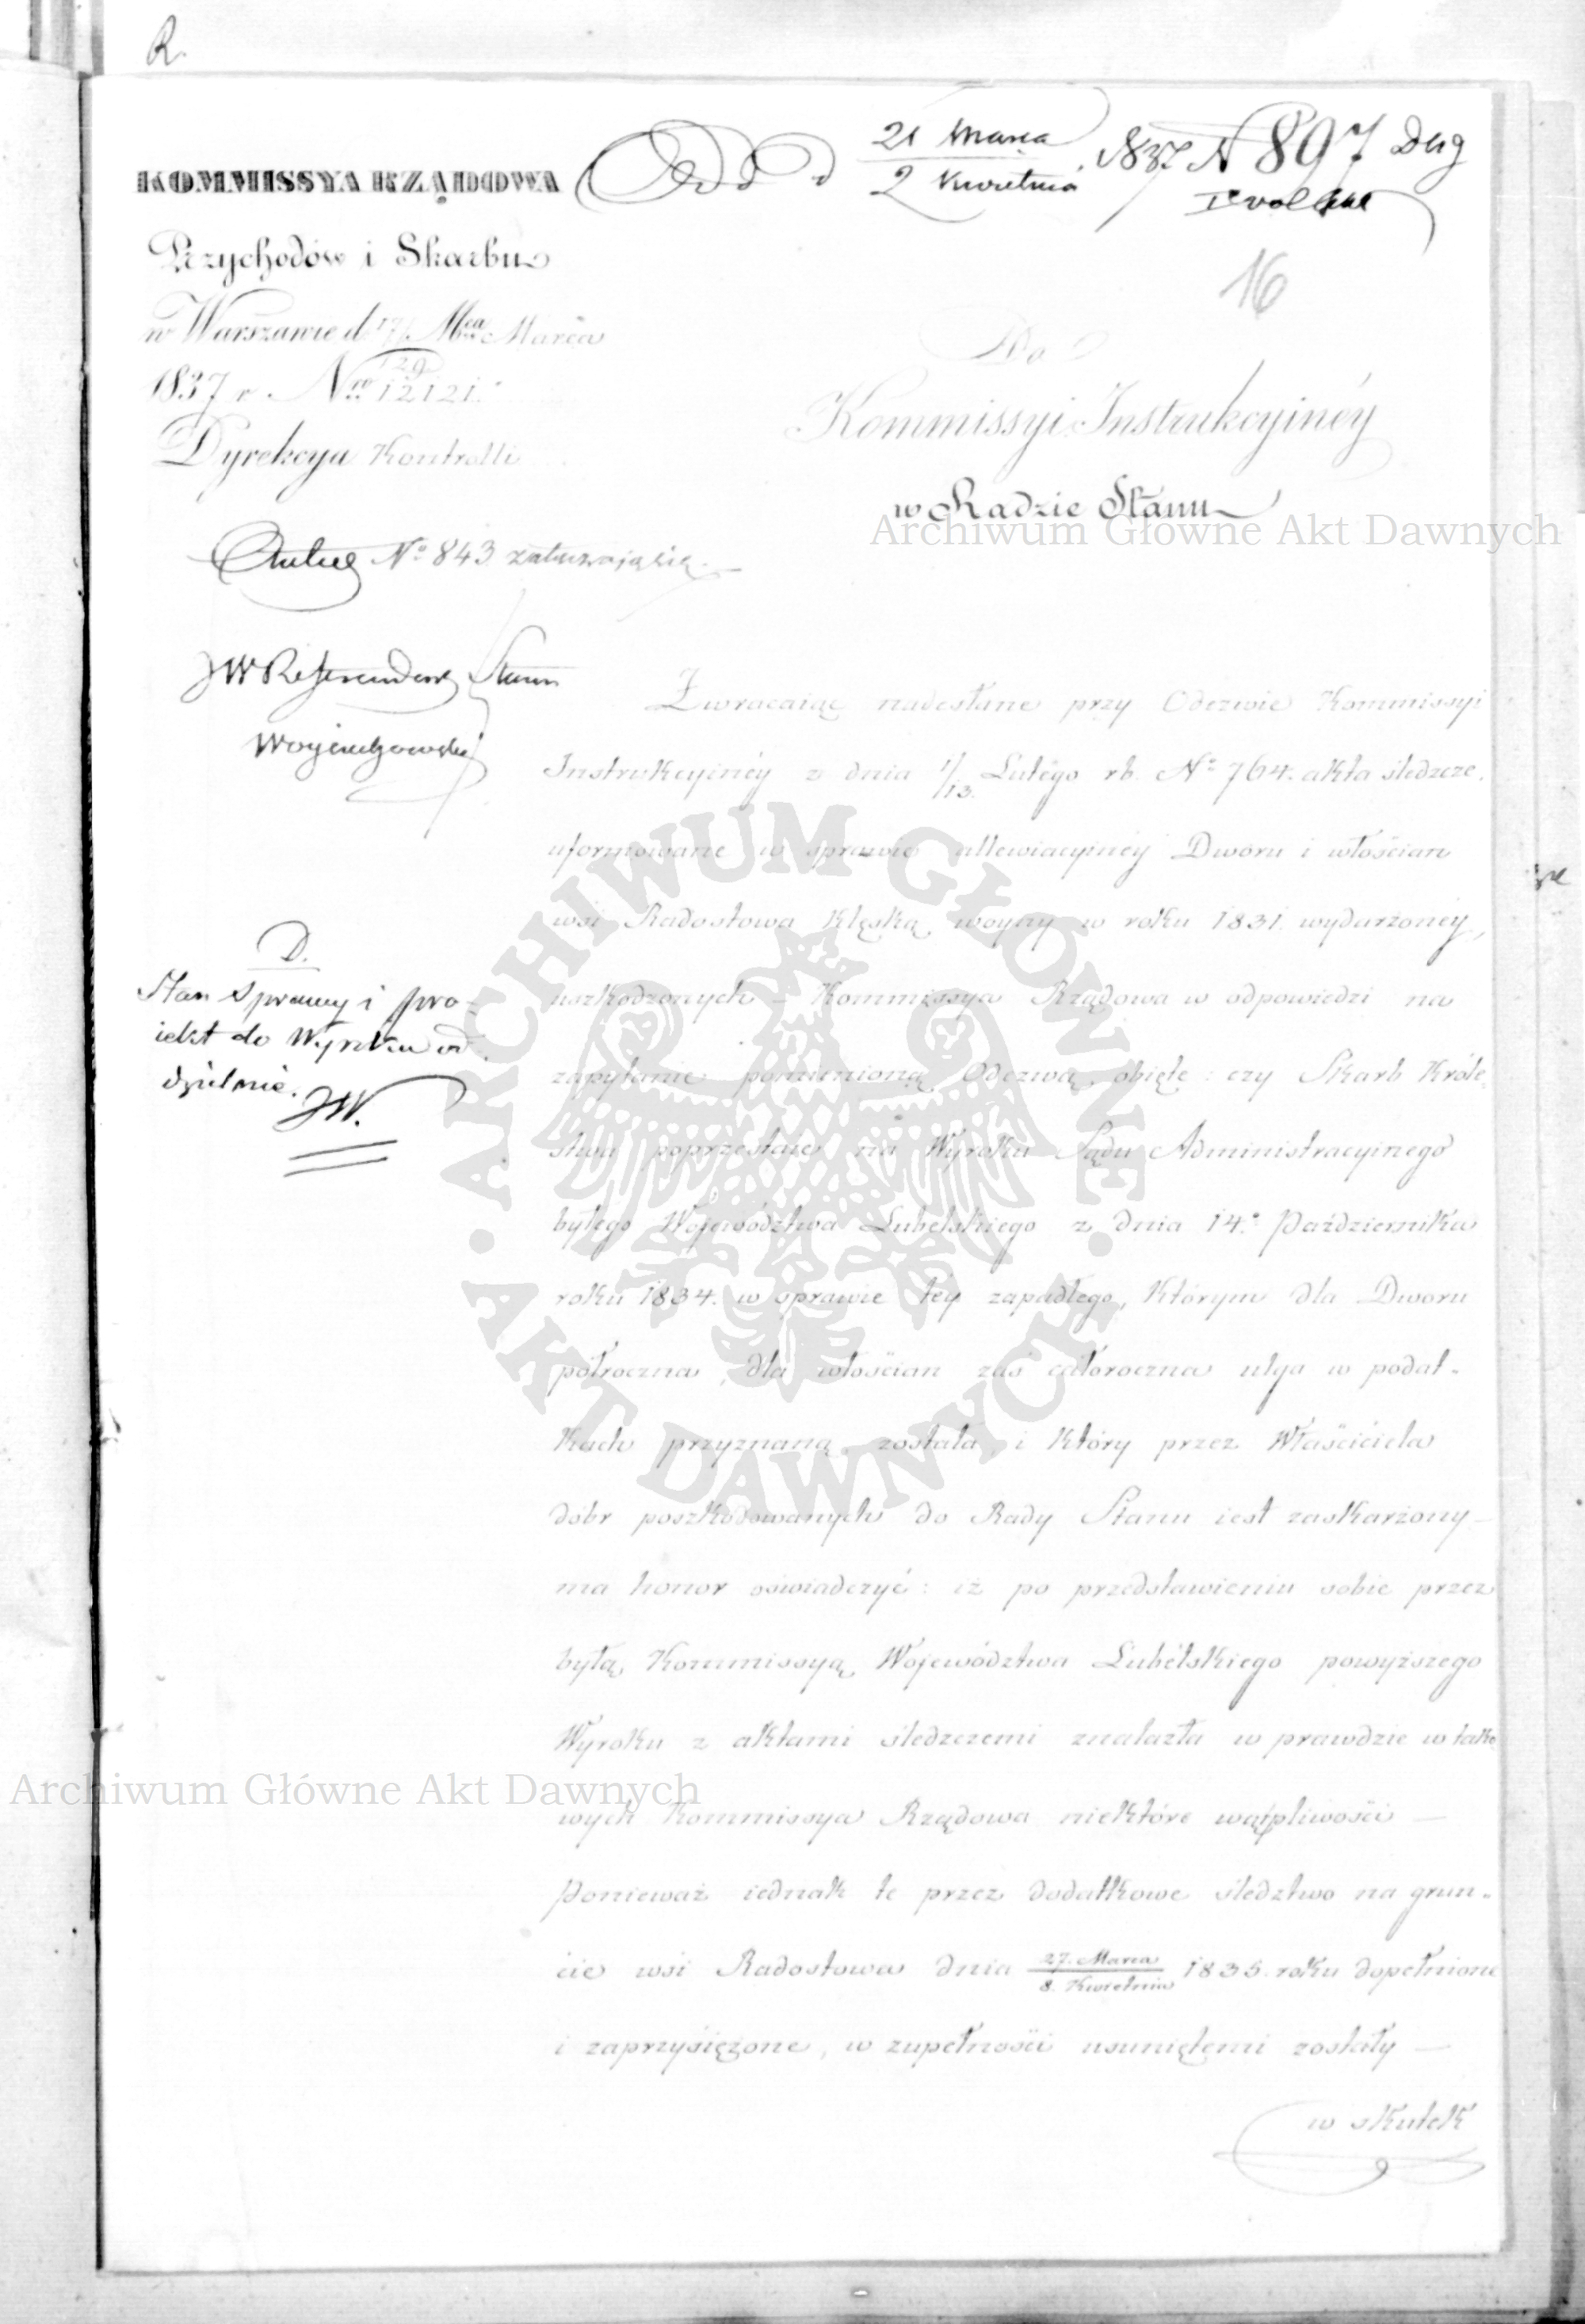 R.
21 Marca
2 Kwietnia 1837 N 897
16
KOMMISSYA RZĄDOWA
Przychodów i Skarbu
w Warszawie d 17/29 Mca Marca
1837 r. Nro 12121.
Dyrekcya Kontrolli
Do
Kommissyi Instrukcyinéy
w Radzie Stanu
Archiwum Główne Akt Dawnych
No 843
JW Referendarz Stanu
Wojciechowski
D.
Stan sprawy i pro-
iekt do Wyroku od
dzielnie.
JW.
Zwracaiąc nadesłane przy Odezwie Kommissyi
Instrukcyinéy z dnia 1/13. Lutégo rb. No 764. akta śledzcze,
uformowane w sprawie allewiacyinéy Dworu i włościan
wsi Radostowa klęską woyny w roku 1831. wydarzonéy,
uszkodzonych – Kommissya Rządowa w odpowiedzi na
zapytanie pomienioną Odezwą obięte: czy Skarb Króle-
stwa poprzestaie na Wyroku Sądu Administracyinego
byłego Województwa Lubelskiego z dnia 14. Października
roku 1834. w sprawie téy zapadłego, którym dla Dworu
półroczna, dla włościan zaś całoroczna ulga w podat-
kach przyznaną została, i który przez Właściciela
dóbr poszkodowanych do Rady Stanu iest zaskarżony –
ma honor oświadczyć: iż po przedstawieniu sobie przez
byłą Kommissyą Województwa Lubelskiego powyższego
Wyroku z aktami śledzczemi znalazła w prawdzie w tako
wych Kommissya Rządowa niektóre wątpliwości –
Ponieważ iednak te przez dodatkowe śledztwo na grun-
cie wsi Radostowa dnia 27. Marca / 8. Kwietnia 1835. roku dopełnione
i zaprzysiężone, w zupełności usuniętemi zostały –
w skutek
Archiwum Główne Akt Dawnych
ARCHIWUM GŁÓWNE AKT DAWNYCH